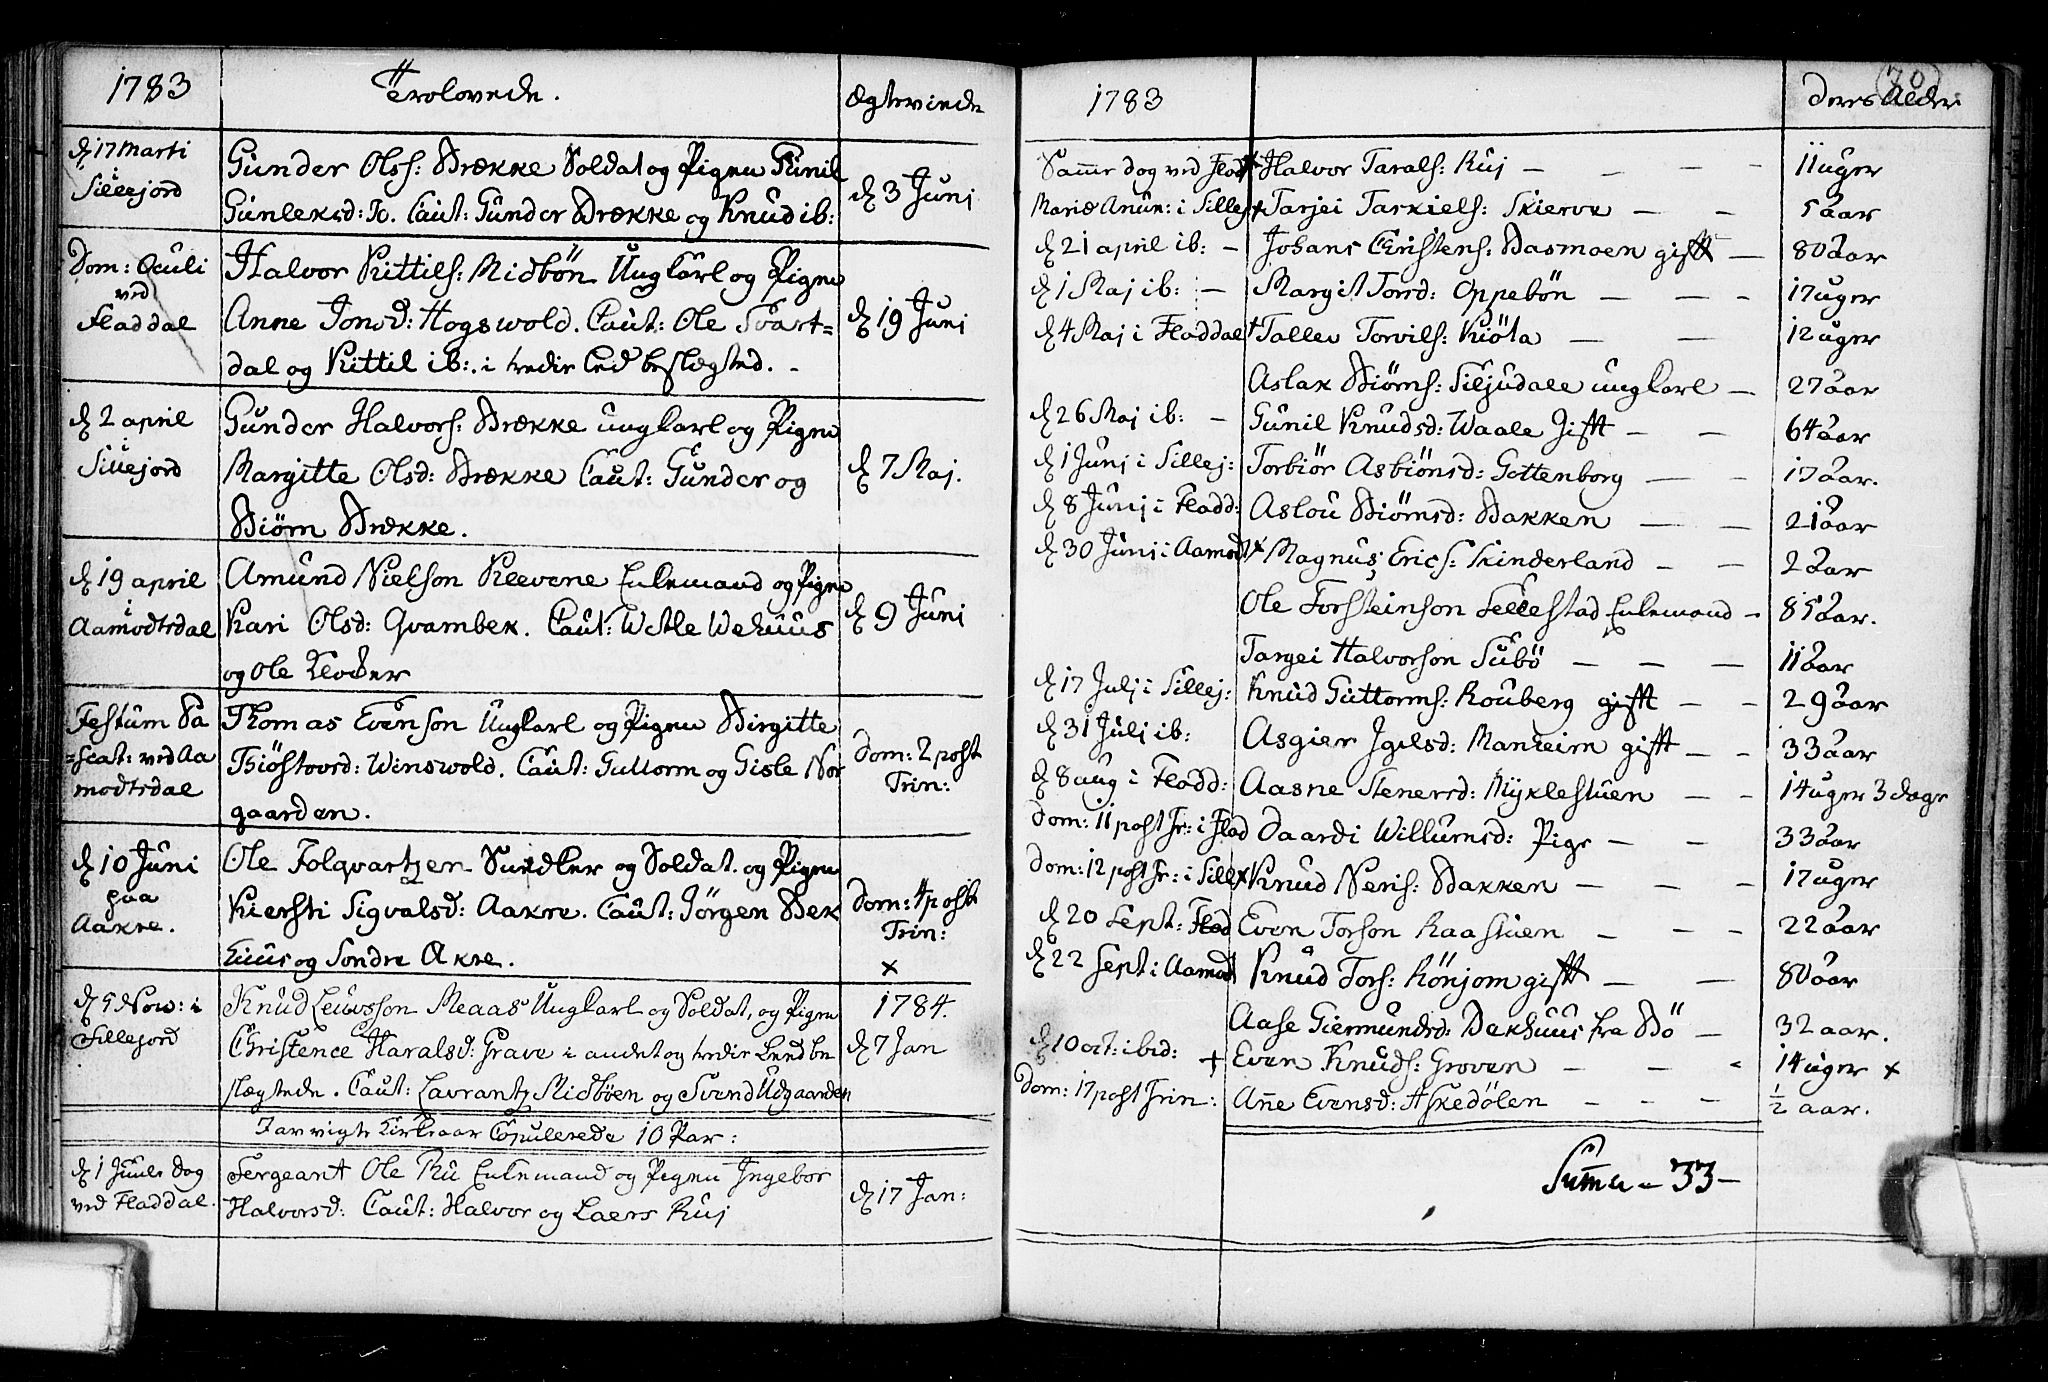 1783
Trolovede.
Ægteviede
d 17 Marti
i
Sillejord
Gunder Olss: Brække Soldat og Pigen Gunil
Gunleksd: Ib. Caut: Gunder Brække og Knud ib:
d 3 Junj
Dom: Oculi
ved
Fladdal
Halvor Kittils: Midbön Ungkarl og Pigen
Anne Jonsd: Hogswold. Caut: Ole Svart=
dal og Kittil ib: i tredie Led beslægted.
d 19 Junj
d 2 april
i
Sillejord
Gunder Halvors: Brække ungkarl og Pigen
Margitte Olsd: Brække Caut: Gunder og
Biörn Brække.
d 7 Maj.
d 19 april
i
Aamodtsdal
Amund Nielson Kleevene Enkemand og Pigen
Kari Olsd: Qvambek. Caut: Wetle Wehuus
og Ole Klocker
d 9 Juni
Festum Pa
=scat: ved Aa
modtsdal
Thomas Evenson Ungkarl og Pigen Birgitte
Thiöstovrd: Winswold. Caut: Guttorm og Gisle Nor
gaarden.
Dom: 2 post
Trin:
d 10 Juni
paa
Aakre.
Ole Folqvartzen Snedker og Soldat og Pigen
Kiersti Sigvalsd: Aakre. Caut: Jörgen Bek
huus og Sondre Akre.
Dom: 4 post
Trin:
x
d 5 Nov: i
Sillejord
Knud Leuvsson Meaas Ungkarl og Soldat, og Pigen
Christence Haralsd: Grave i andet og tredie Leed be
slægtede. Caut: Lavrantz Midböen og Svend Udgaarden
1784.
d 7 Jan
Jarvigte Kirkeaar Copulerede 10 Par:
d 1 Juule dag
ved Fladdal.
Sergeant Ole Ru Enkemand og Pigen Ingebor
Halvorsd: Caut: Halvor og Laers Ruj
d 17 Jan:
1783
70
deres Alder
Samme dag ved Flad x Halvor Tarals: Ruj — — — 11 uger
Mariæ Anun: i Sillej + Tarjei Tarkiels: Skierve — — 5 aar
d 21 april ib: — Johans Christens: Dasmoen gift — 80 aar
d 1 Maj ib: — Margit Torsd: Oppebön — — — 17 uger
d 4 Maj i Fladdal + Tallev Torvils: Kiöta — — 12 uger
Aslak Biörns: Siljudale ungkarl — 27 aar
d 26 Maj ib: — Gunil Knudsd: Waale Gift — — 64 aar
d 1 Junj i Sillej: Torbiör Asbiönsd: Gottenborg — — 17 aar.
d 8 Junj i Fladd: Aslou Biörnsd: Bakken — — 21 aar
d 30 Junj i Aamodt x Magnus Erics: Skinderland — — 2 aar
Ole Torsteinson Sellestad Enkemand — 85 aar.
Targei Halvorson Subö — — — 11 aar
d 17 Julj i Sillej: Knud Guttorms: Rouberg gift — — 29 aar
d 31 Julj ib: Asgier Igelsd: Manheim gift — — 33 aar
d 8 aug i Fladd: Aasne Stenersd: Myklestuen — — 14 uger 3 dage
Dom: 11 post Tr: i Flad Daardi Willumsd: Pige — — 33 aar
Dom: 12 post Tr: i Sille x Knud Neris: Bakken — — — 17 uger
d 20 Sept: Flad Even Torson Raastuen — — — 22 aar
d 22 Sept i Aamodt Knud Tors: Rönjom gift — — 80 aar
Aase Giermundsd: Bekhuus fra Bö — 32 aar.
d 10 oct: ibid: + Even Knuds: Groven — — - 14 uger x
Dom: 17 post Trin: Añe Evensd: Askedölen — — — ½ aar.
Suma - 33 —